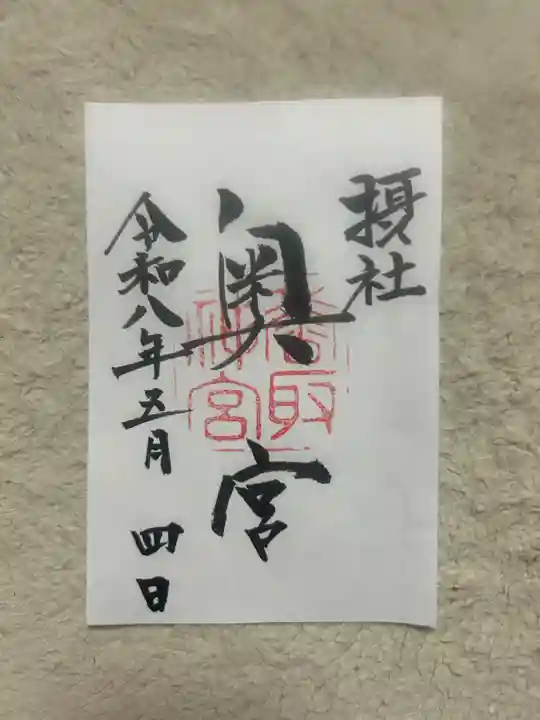 摂社
奥宮
香取
神宮
令和八年五月四日